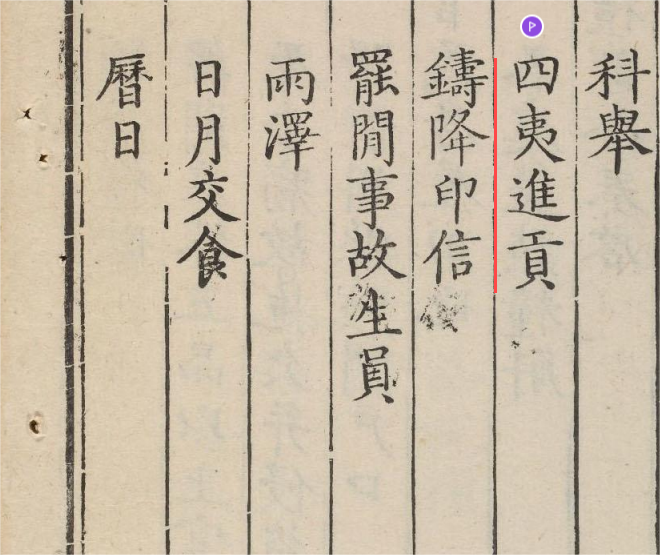 科舉
四夷進貢
鑄降印信
罷閒事故生員
雨澤
日月交食
曆日